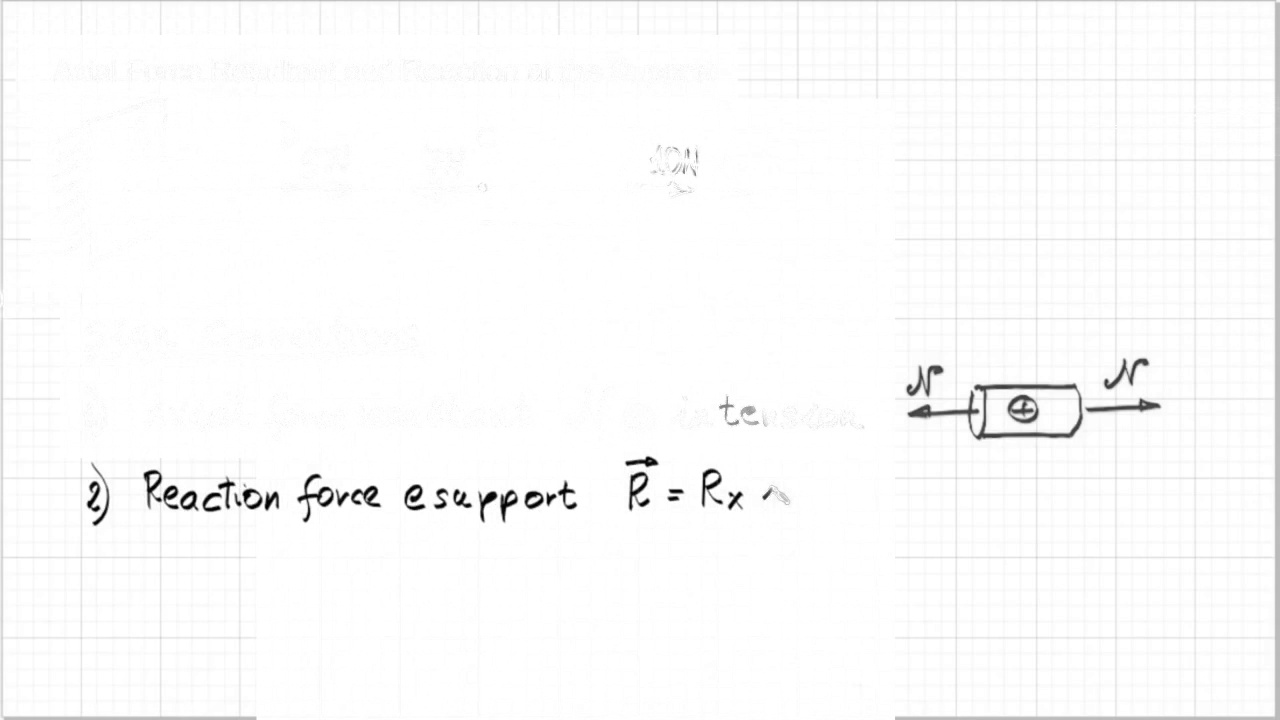 Axial Force Resultant and Reaction at the Support
5N 7N 10N
Sign Convention:
1) Axial force resultant N ⊕ in tension
N ⊕ N
2) Reaction force @ support R⃗ = Rx